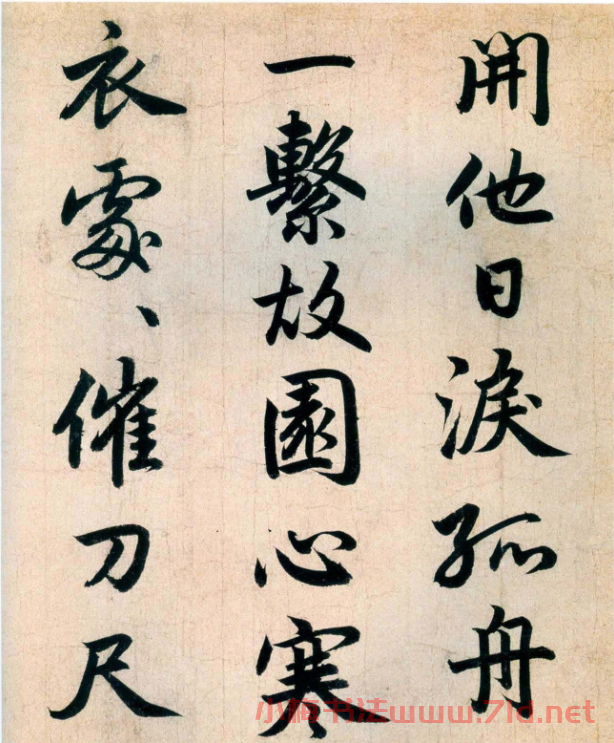 開他日淚孤舟
一繫故園心寒
衣處、催刀尺
小楠书法www.7ld.net